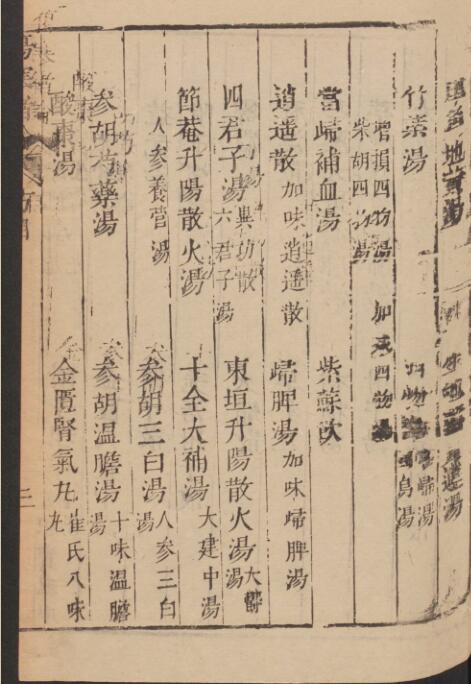 地黃湯
竹素湯
增損四物湯
柴胡四物湯 加減四物湯
當歸補血湯 紫蘇飲
逍遙散 加味逍遙散 歸脾湯 加味歸脾湯
四君子湯 異功散 六君子湯 東垣升陽散火湯
節菴升陽散火湯 十全大補湯 大建中湯
人參養營湯 參胡三白湯 人參三白湯
參胡芍藥湯 參胡溫膽湯 十味溫膽湯
酸棗湯 金匱腎氣丸 崔氏八味丸